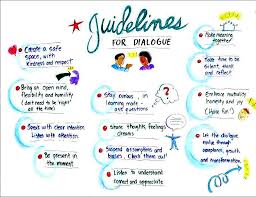 Guidelines
FOR DIALOGUE
Create a safe
space, with
kindness and respect
Bring an open mind,
flexibility and humility
(don't need to be "right"
all the time)
Speak with clear intention
Listen with attention.
Be present in the
moment
Stay curious, in
learning mode...
ask questions
Share thoughts, feelings
dreams
Suspend assumptions and
biases, Check them out!
Listen to understand
connect and appreciate
Make meaning
together
Take time to be
silent, still
and reflect
Embrace mutuality
humanity and joy
(Have fun!)
Let the dialogue
move through
acceptance, growth
and transformation.